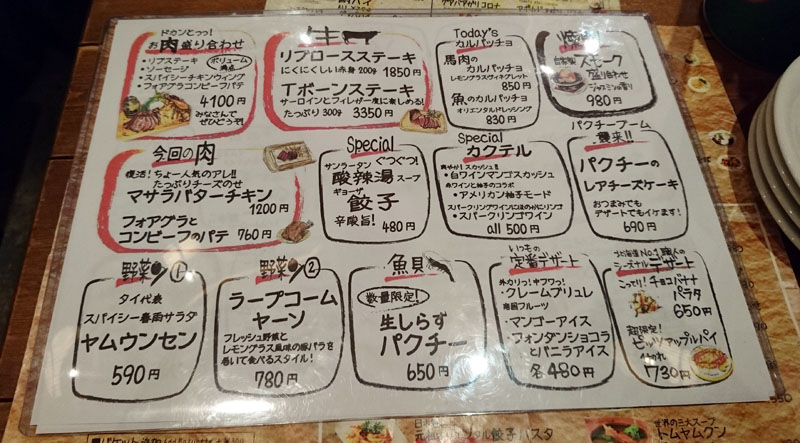 ドカンとっっ!
お肉盛り合わせ
・リブステーキ
・ソーセージ
・スパイシーチキンウィング
・フォアグラコンビーフパテ
ボリューム満点
4100円
みなさんで
ぜひどうぞ!
牛
リブロースステーキ
にくにくしい赤身 200g 1850円
Tボーンステーキ
サーロインとフィレが一度に楽しめる!
たっぷり 300g 3350円
Today's
カルパッチョ
馬肉の
カルパッチョ
レモングラスヴィネグレット
850円
魚のカルパッチョ
オリエンタルドレッシング
830円
スモーク
盛り合わせ
ジャスミンの香り
980円
今回の肉
復活!ちょー人気のアレ!!
たっぷりチーズのせ
マサラバターチキン
1200円
フォアグラと
コンビーフのパテ 760円
Special
サンラータン ぐつぐつ!
酸辣湯スープ
ギョーザ
餃子
辛酸旨! 480円
Special
カクテル
爽やか!スカッシュ!!
・白ワインマンゴスカッシュ
赤ワインと柚子のコラボ
・アメリカン柚子モード
・スパークリングワイン
all 500円
パクチーブーム
襲来!!
パクチーの
レアチーズケーキ
おつまみでも
デザートでもイケます!
690円
野菜1
タイ代表
スパイシー春雨サラダ
ヤムウンセン
590円
野菜2
ラープコーム
ヤーソン
フレッシュ野菜と
レモングラス風味の豚バラを
巻いて食べるスタイル!
780円
魚貝
数量限定!
生しらす
パクチー
650円
いつもの
定番デザート
外カリっ!中フワっ!
・クレームブリュレ
南国フルーツ
・マンゴーアイス
・フォンダンショコラ
とバニラアイス
各480円
北海道No.1職人の
シーズナルデザート
こってり!チョコバナナ
パラタ
650円
超限定!
ピッツァアップルパイ
730円
トムヤムクン